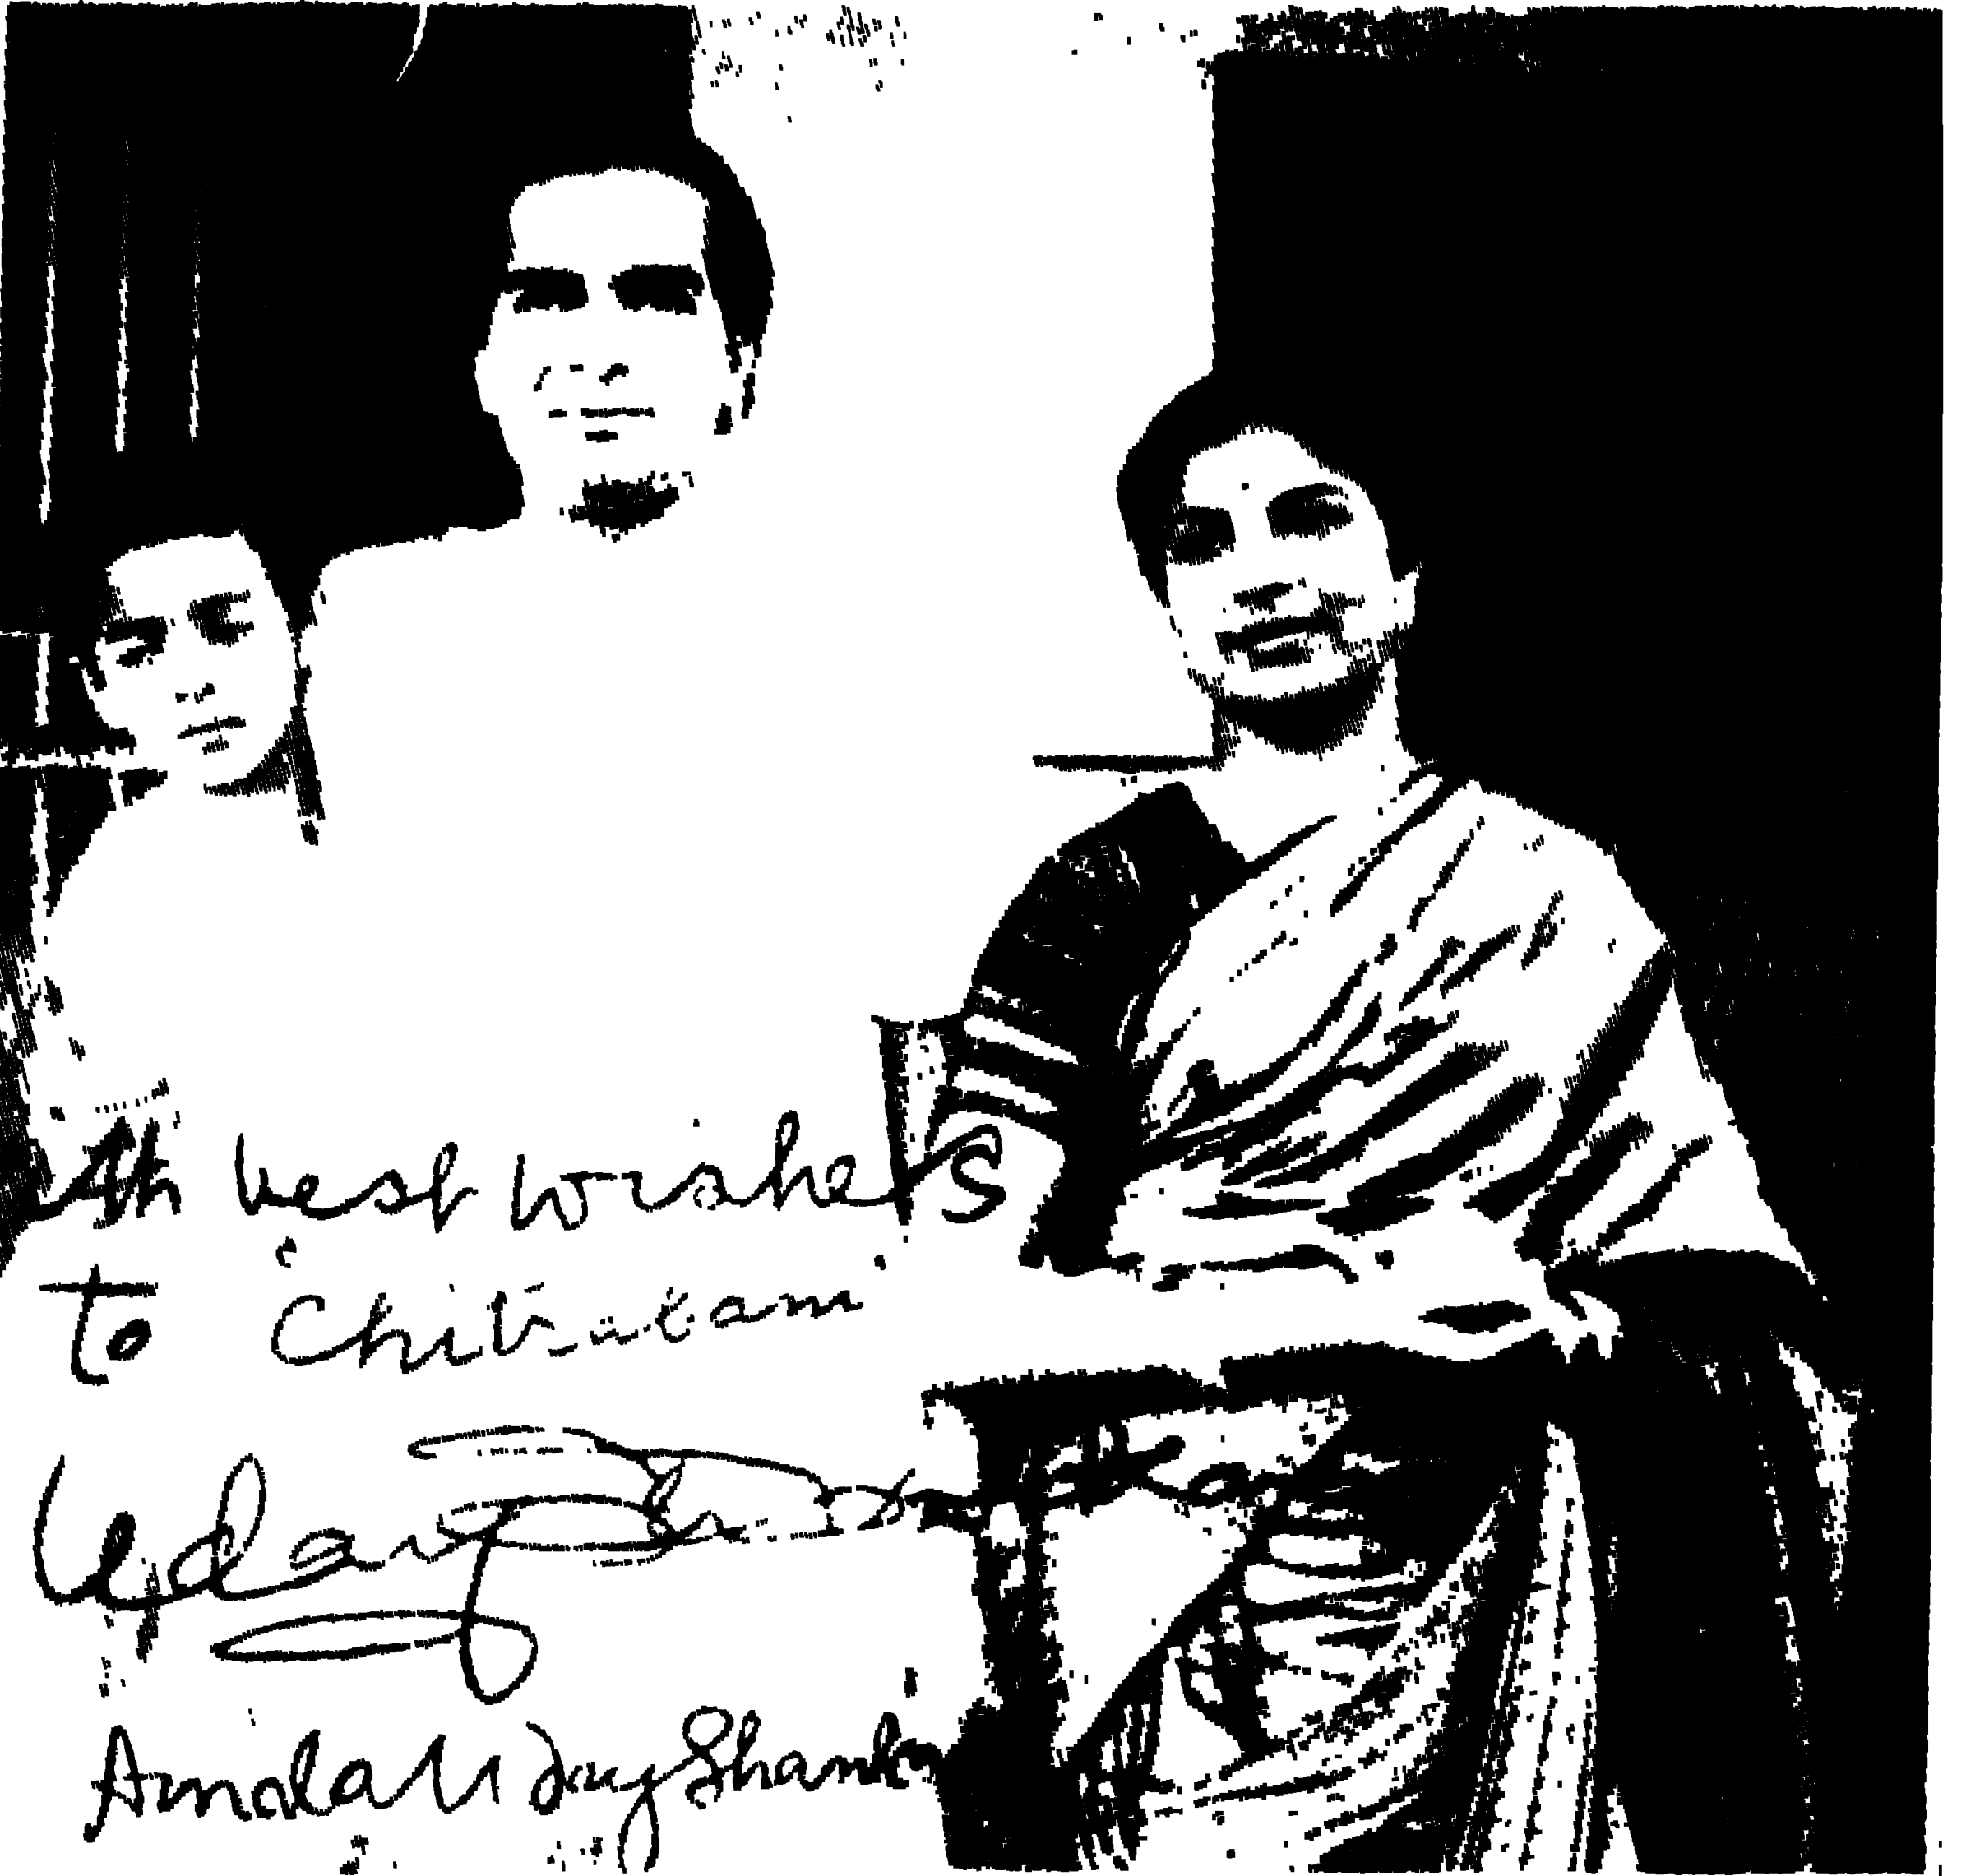 th best wishes
to "Chitrakam"
Uday Shankar
Amala Uday Shankar